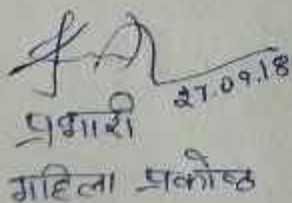 27.09.18
प्रभारी
महिला प्रकोष्ठ